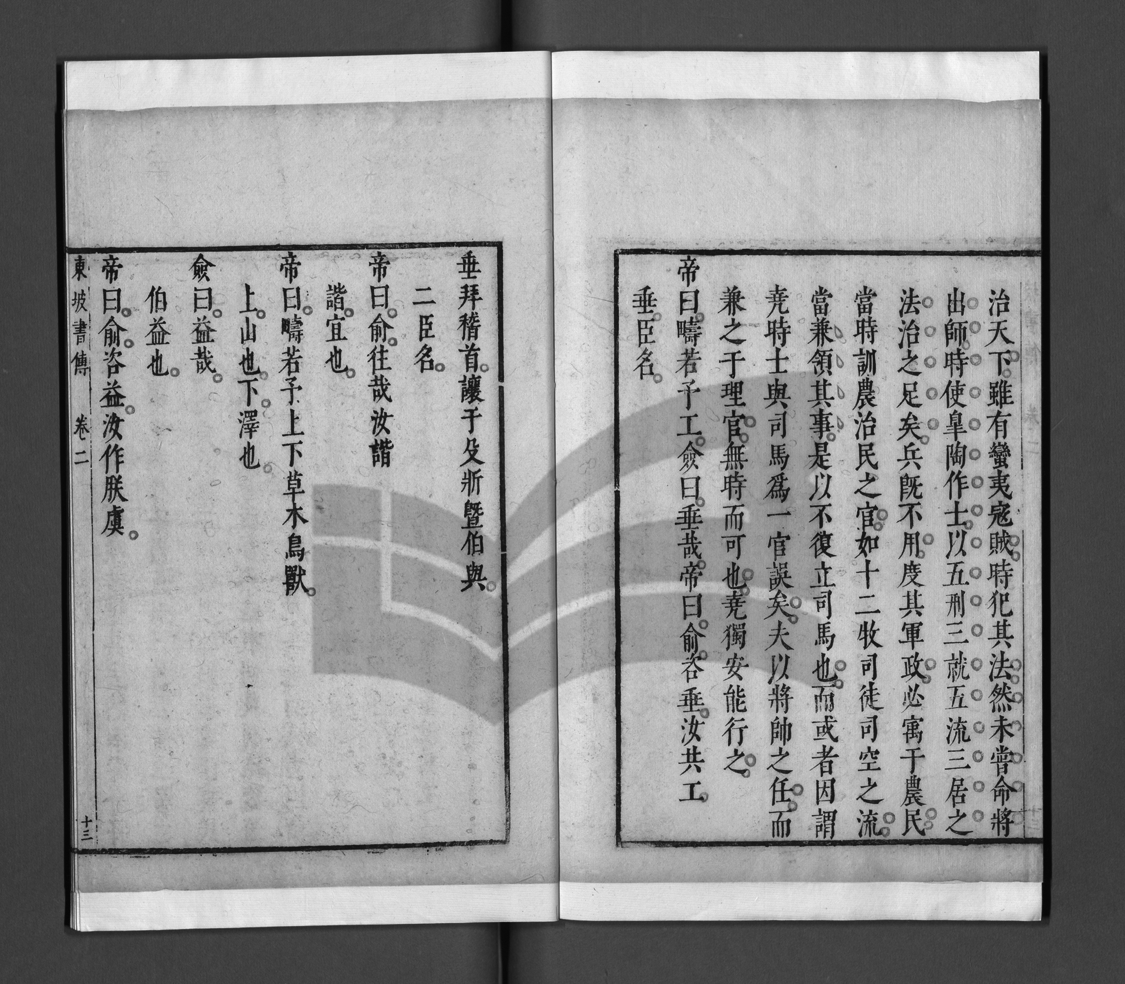 治天下雖有蠻夷寇賊時犯其法然未嘗命將
出師時使臯陶作士以五刑三就五流三居之
法治之足矣兵旣不用度其軍政必寓于農民
當時訓農治民之官如十二牧司徒司空之流
當兼領其事是以不復立司馬也而或者因謂
堯時士與司馬爲一官誤矣夫以將帥之任而
兼之于理官無時而可也堯獨安能行之
帝曰疇若予工僉曰垂哉帝曰俞咨垂汝共工
垂臣名
垂拜稽首讓于殳斨曁伯與
二臣名
帝曰俞往哉汝諧
諧宜也
帝曰疇若予上下草木鳥獸
上山也下澤也
僉曰益哉
伯益也
帝曰俞咨益汝作朕虞
東坡書傳 卷二 十三